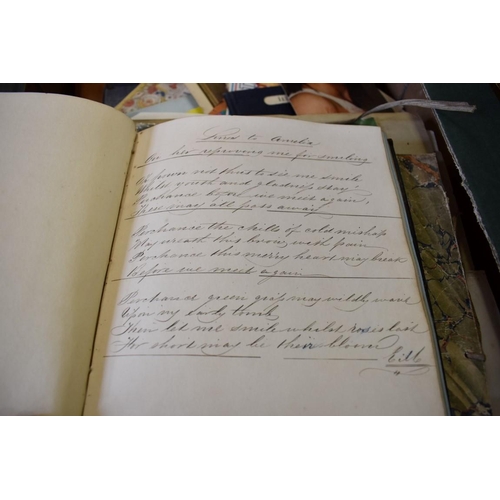 Lines to Amelia
On her reproving me for smiling
Oh frown not thus to see me smile
While youth and gladness stay
Perchance before we meet again,
These may all pass away
Perchance the chills of cold mishap
May wreath this brow with pain
Perchance this merry heart may break
before we meet again
Perchance green grass may wildly wave
Upon my early tomb
Then let me smile whilst roses last
For short may be their bloom
E.M.